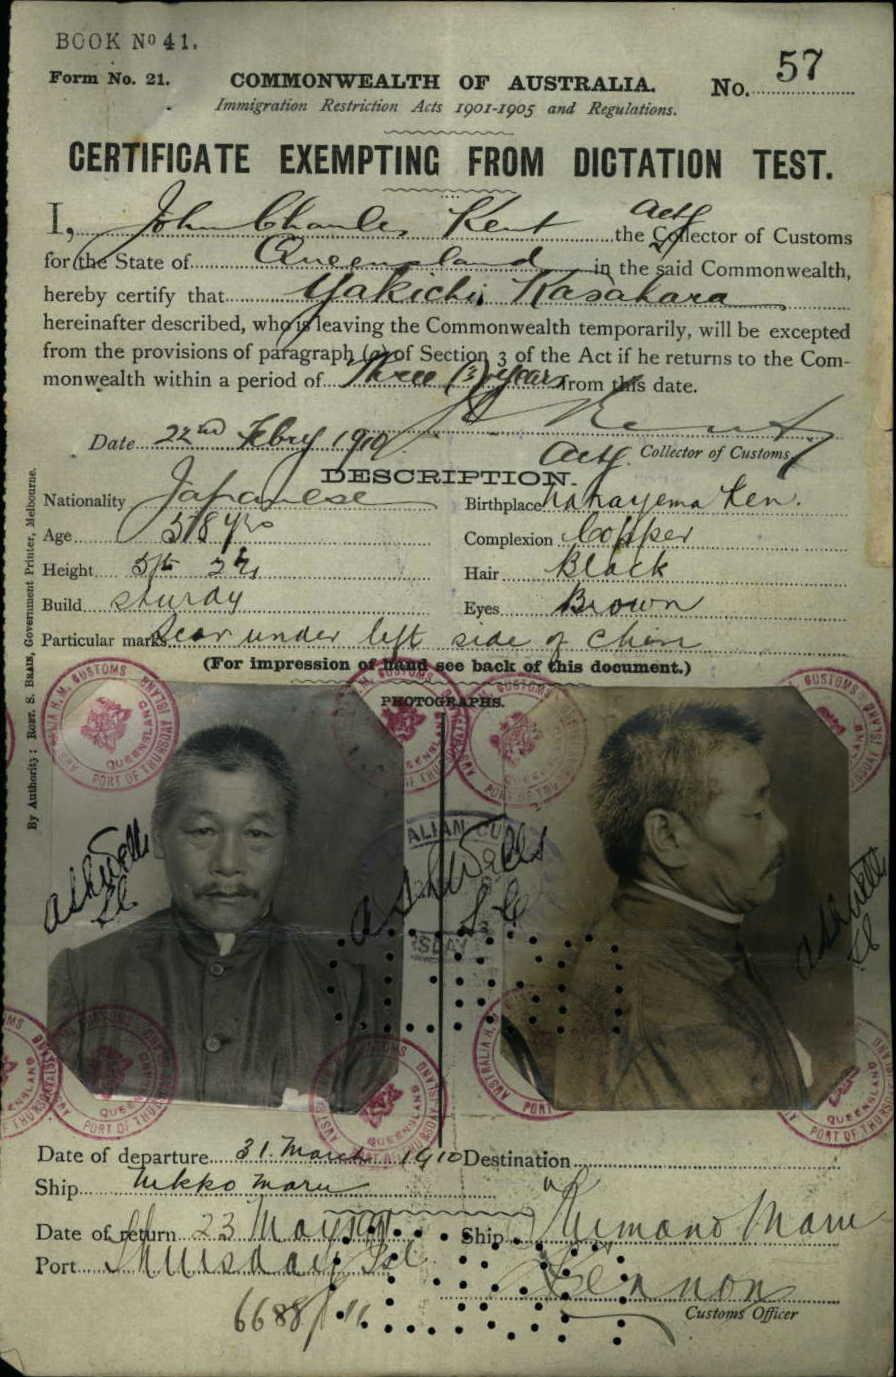 BOOK No 41.
Form No. 21. COMMONWEALTH OF AUSTRALIA. No. 57
Immigration Restriction Acts 1901-1905 and Regulations.
CERTIFICATE EXEMPTING FROM DICTATION TEST.
I, John Charles Kent actg the Collector of Customs
for the State of Queensland in the said Commonwealth,
hereby certify that Yakichi Kasahara
hereinafter described, who is leaving the Commonwealth temporarily, will be excepted
from the provisions of paragraph (a) of Section 3 of the Act if he returns to the Com-
monwealth within a period of Three (3) years from this date.
Date 22nd Febry 1910
Actg. Collector of Customs
DESCRIPTION.
Nationality Japanese Birthplace Wakayama Ken.
Age 38 yrs Complexion Copper
Height 5ft Hair Black
Build sturdy Eyes Brown
Particular marks Scar under left side of chin
(For impression of hand see back of this document.)
PHOTOGRAPHS.
By Authority: ROBT. S. BRAIN, Government Printer, Melbourne.
H.M. CUSTOMS
QUEENSLAND
PORT OF THURSDAY ISLAND
Date of departure 31. March 1910 Destination
Ship Nikko Maru
Date of return 23 May Ship Kumano Maru
Port Thursday Isl
Customs Officer
6688/11